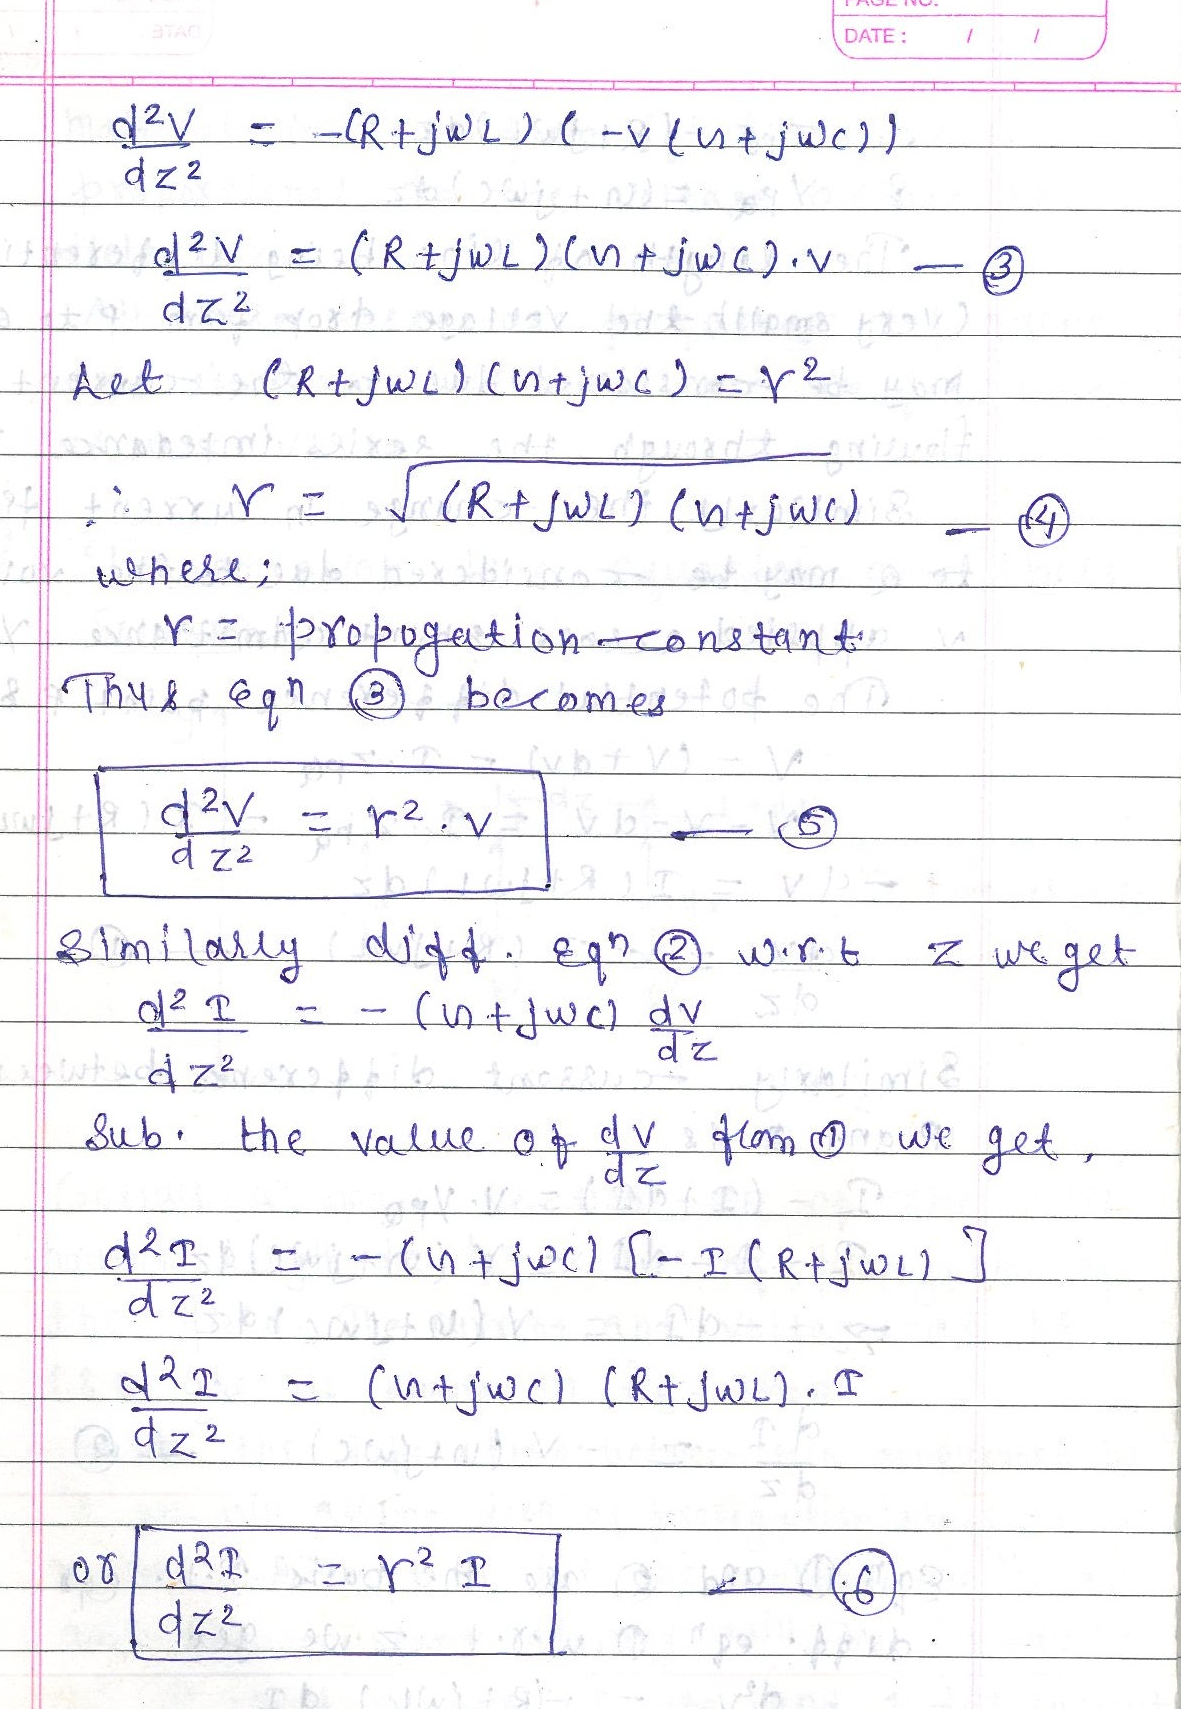 PAGE NO.
DATE : / /
d²V/dz² = -(R+jωL) (-V(G+jωC))
d²V/dz² = (R+jωL)(G+jωC).V — ③
Let (R+jωL)(G+jωC) = γ²
∴ γ = √(R+jωL)(G+jωC) — ④
where;
γ = propogation constant
Thus eqⁿ ③ becomes
d²V/dz² = γ².V — ⑤
Similarly diff. eqⁿ ② w.r.t z we get
d²I/dz² = -(G+jωC) dV/dz
Sub. the value of dV/dz from ① we get,
d²I/dz² = -(G+jωC) [-I(R+jωL)]
d²I/dz² = (G+jωC) (R+jωL).I
or d²I/dz² = γ² I — ⑥